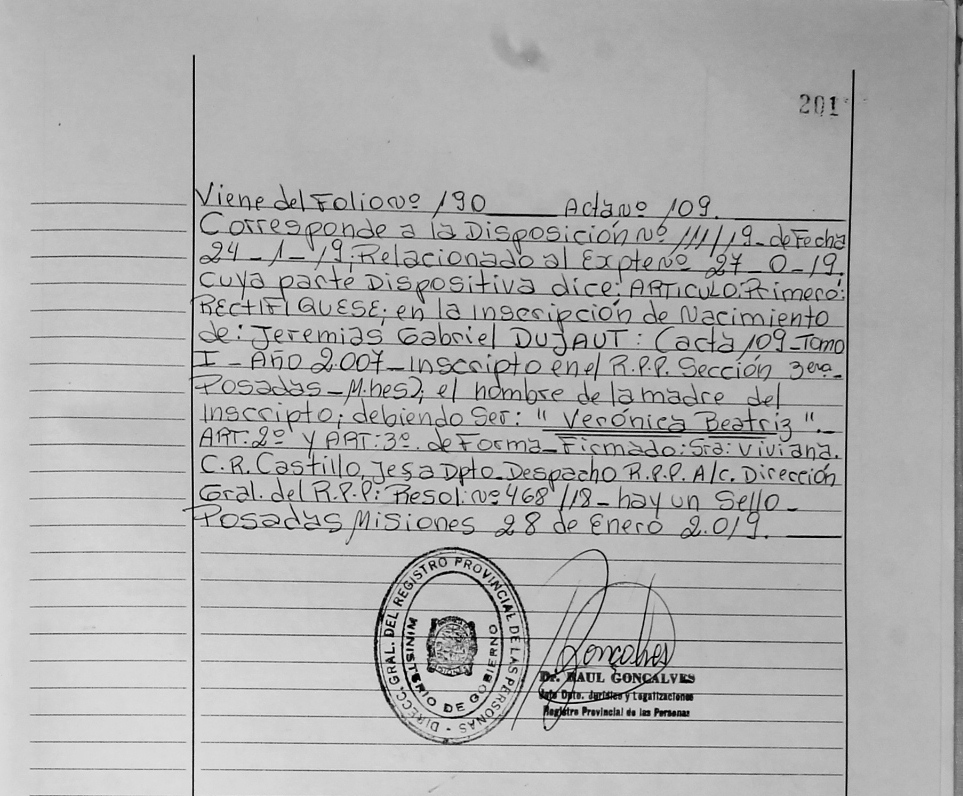 201
Viene del Folio Nº 190 Acta Nº 109.
Corresponde a la Disposición Nº 111/19_ de Fecha
24_1_19; Relacionado al Expte Nº 27_0_19.
cuya parte Dispositiva dice: ARTICULO: Primero:
RECTIFIQUESE; en la Inscripción de Nacimiento
de: Jeremias Gabriel DUJAUT: (acta 109_Tomo
I_Año 2.007_Inscripto en el R.P.P. Sección 3era_
Posadas_M.nes); el nombre de la madre del
Inscripto; debiendo Ser: "Verónica Beatriz".
ART: 2º y ART: 3º. de Forma_Firmado: Sra: Viviana.
C.R. Castillo, Jefa Dpto. Despacho R.P.P. A/c. Dirección
Gral. del R.P.P: Resol: Nº 468/18_hay un Sello_
Posadas Misiones 28 de Enero 2.019.
DIRECC. GRAL. DEL REGISTRO PROVINCIAL DE LAS PERSONAS -
MINISTERIO DE GOBIERNO
Gonçalves
Dr. RAUL GONÇALVES
Jefe Dpto. Jurídico y Legalizaciones
Registro Provincial de las Personas